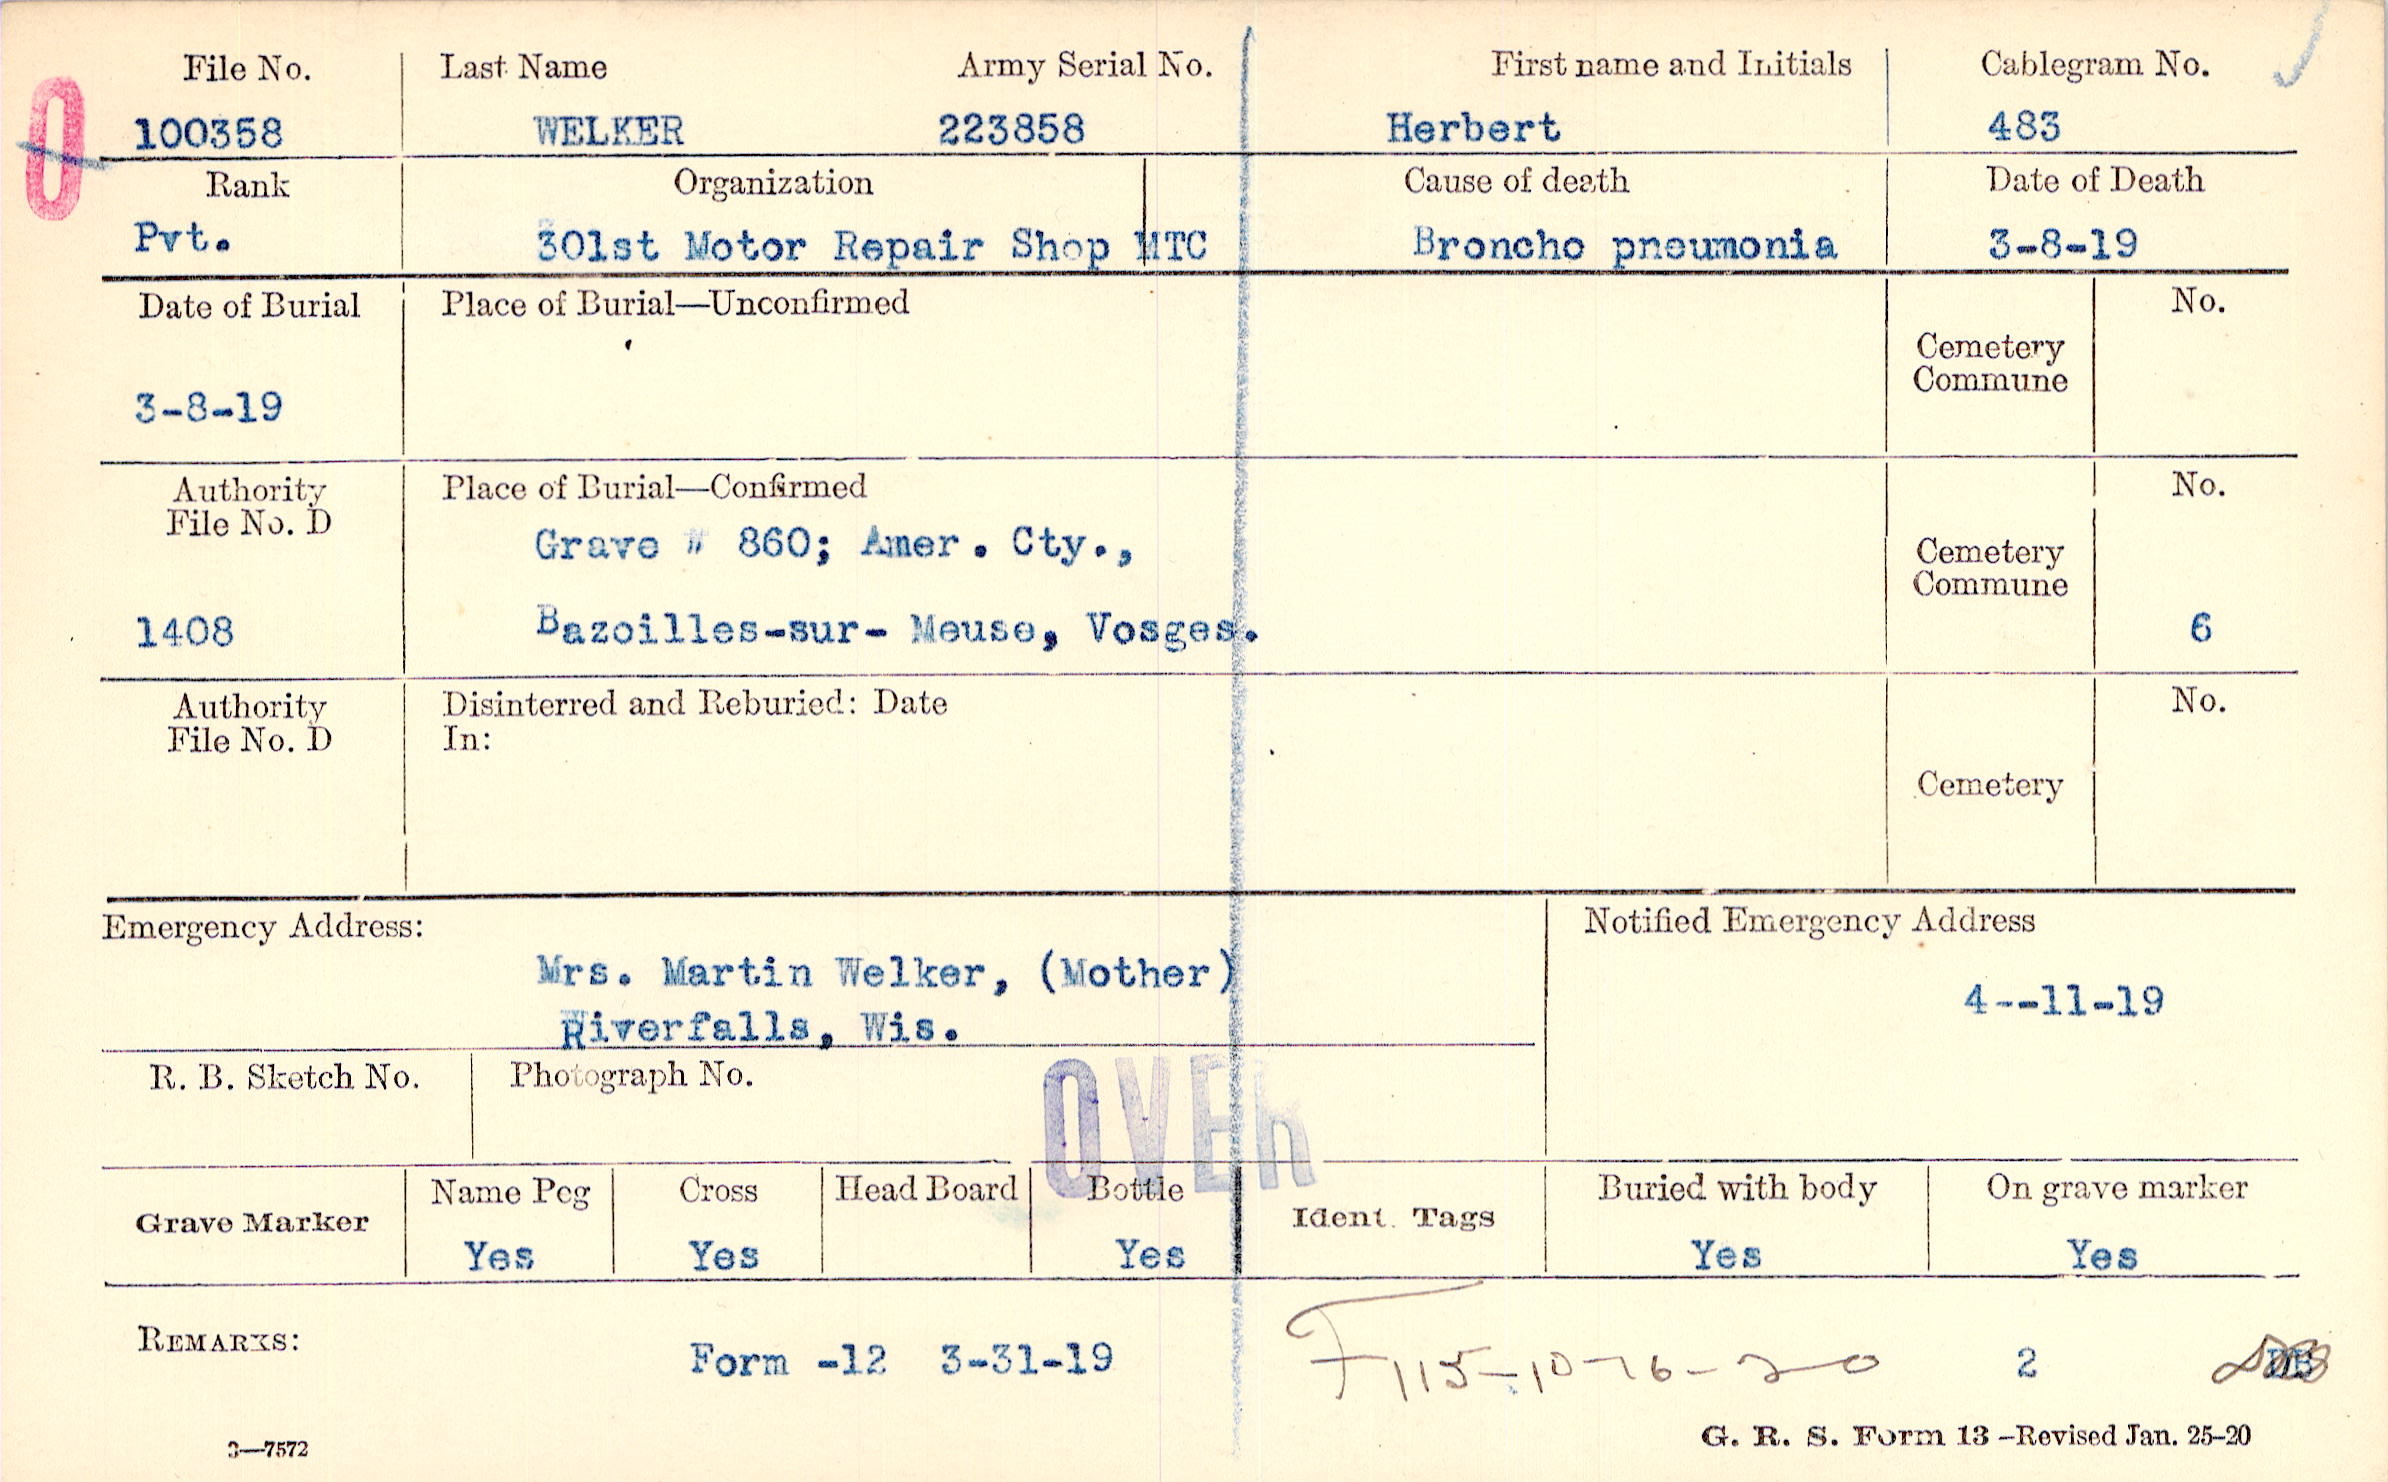 File No. Last Name Army Serial No. First name and Initials Cablegram No.
O 100358 WELKER 223858 Herbert 483
Rank Organization Cause of death Date of Death
Pvt. 301st Motor Repair Shop MTC Broncho pneumonia 3-8-19
Date of Burial Place of Burial—Unconfirmed No.
Cemetery
Commune
3-8-19
Authority Place of Burial—Confirmed No.
File No. D
Grave # 860; Amer. Cty.,
Cemetery
Commune
1408 Bazoilles-sur- Meuse, Vosges. 6
Authority Disinterred and Reburied: Date No.
File No. D In:
Cemetery
Emergency Address: Notified Emergency Address
Mrs. Martin Welker, (Mother)
4--11-19
Riverfalls, Wis.
R. B. Sketch No. Photograph No.
OVER
Name Peg Cross Head Board Bottle Buried with body On grave marker
Grave Marker Ident. Tags
Yes Yes Yes Yes Yes
REMARKS: Form -12 3-31-19 F115-10-16-20 2
3—7572 G. R. S. Form 13 —Revised Jan. 25-20